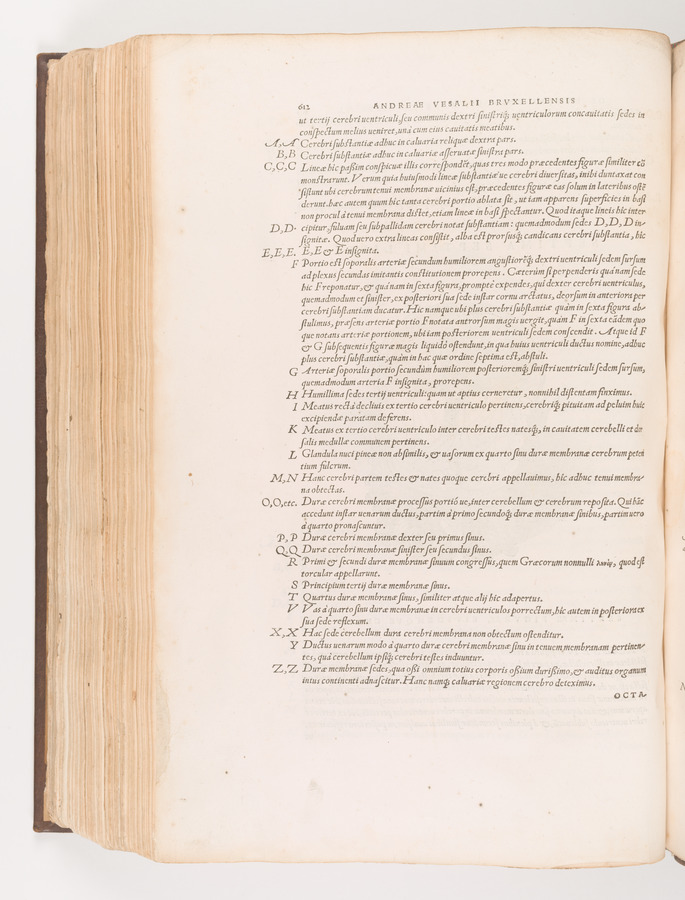 612 ANDREAE VESALII BRVXELLENSIS
ut tertij cerebri uentriculi, seu communis dextri sinistriq́; uentriculorum concauitatis sedes in
conspectum melius ueniret, unà cum eius cauitatis meatibus.
A,A Cerebri substantiæ adhuc in caluaria reliquæ dextra pars.
B,B Cerebri substantiæ adhuc in caluaria asseruatæ sinistra pars.
C,C,C Lineæ hic passim conspicuæ illis correspondēt, quas tres modo præcedentes figuræ similiter cō
monstrarunt. Verum quia huiusmodi lineæ substantiæ'ue cerebri diuersitas, inibi duntaxat con
sistunt ubi cerebrum tenui membranæ uicinius est, præcedentes figuræ eas solum in lateribus ostē
derunt. hæc autem quum hic tanta cerebri portio ablata sit, ut iam apparens superficies in basi
non procul à tenui membrana distet, etiam lineæ in basi spectantur. Quod itaque lineis hic inter
D,D. cipitur, fuluam seu subpallidam cerebri notat substantiam: quemadmodum sedes D, D, D in-
signitæ. Quod uero extra lineas consistit, alba est prorsusq́; candicans cerebri substantia, hic
E,E,E. E, E & E insignita.
F Portio est soporalis arteriæ secundum humiliorem angustiorēq́; dextri uentriculi sedem sursum
ad plexus secundas imitantis constitutionem prorepens. Cæterùm si perpenderis quànam sede
hic F reponatur, & quànam in sexta figura, promptè expendes, quî dexter cerebri uentriculus,
quemadmodum et sinister, ex posteriori sua sede instar cornu arctatus, deorsum in anteriora per
cerebri substantiam ducatur. Hic namque ubi plus cerebri substantiæ quàm in sexta figura ab-
stulimus, præsens arteriæ portio F notata antrorsum magis uergit, quàm F in sexta eādem quo
que notans arteriæ portionem, ubi iam posteriorem uentriculi sedem conscendit. Atque id F
& G subsequentis figuræ magis liquidò ostendunt, in qua huius uentriculi ductus nomine, adhuc
plus cerebri substantiæ, quàm in hac quæ ordine septima est, abstuli.
G Arteriæ soporalis portio secundùm humiliorem posterioremq́; sinistri uentriculi sedem sursum,
quemadmodum arteria F insignita, prorepens.
H Humillima sedes tertij uentriculi: quam ut aptius cerneretur, nonnihil distentam finximus.
I Meatus rectà decliuis ex tertio cerebri uentriculo pertinens, cerebriq́; pituitam ad peluim huic
excipiendæ paratam deferens.
K Meatus ex tertio cerebri uentriculo inter cerebri testes natesq́;, in cauitatem cerebelli et dor
salis medullæ communem pertinens.
L Glandula nuci pineæ non absimilis, & uasorum ex quarto sinu duræ membranæ cerebrum peten
tium fulcrum.
M,N Hanc cerebri partem testes & nates quoque cerebri appellauimus, hic adhuc tenui membra-
na obtectas.
O,O,etc. Duræ cerebri membranæ processus portiō ue, inter cerebellum & cerebrum reposita. Qui hūc
accedunt instar uenarum ductus, partim à primo secundoq́; duræ membranæ sinibus, partim uero
à quarto pronascuntur.
P,P Duræ cerebri membranæ dexter seu primus sinus.
Q,Q Duræ cerebri membranæ sinister seu secundus sinus.
R Primi & secundi duræ membranæ sinuum congressus, quem Græcorum nonnulli ληνὸς, quod est
torcular appellarunt.
S Principium tertij duræ membranæ sinus.
T Quartus duræ membranæ sinus, similiter atque alij hic adapertus.
V Vas à quarto sinu duræ membranæ in cerebri uentriculos porrectum, hic autem in posteriora ex
sua sede reflexum.
X,X Hac sede cerebellum dura cerebri membrana non obtectum ostenditur.
Y Ductus uenarum modo à quarto duræ cerebri membranæ sinu in tenuem membranam pertinen-
tes, quà cerebellum ipsiq́; cerebri testes induuntur.
Z,Z Duræ membranæ sedes, qua ossi omnium totius corporis ossium durissimo, & auditus organum
intus continenti adnascitur. Hanc namq́; caluariæ regionem cerebro deteximus.
OCTA-